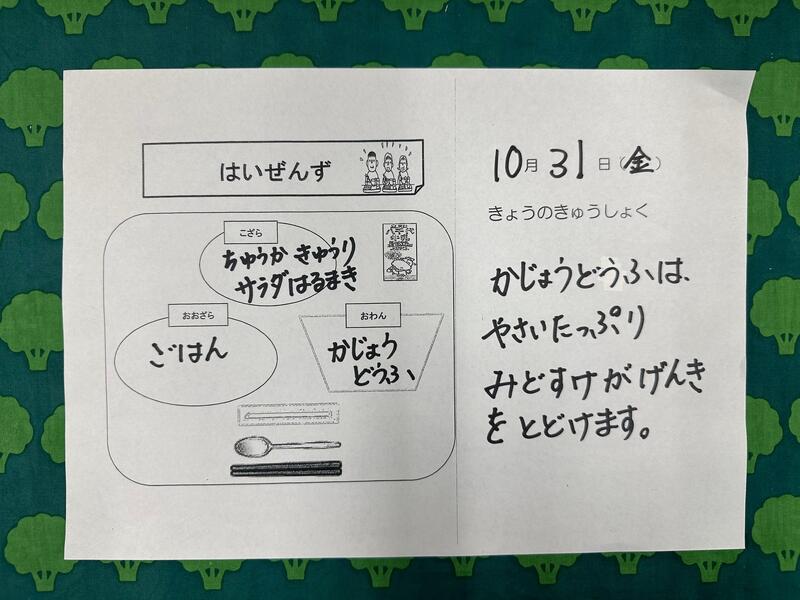 はいぜんず
こざら
ちゅうか きゅうり
サラダ はるまき
おおざら
ごはん
おわん
かじょう
どうふ
10月31日(金)
きょうのきゅうしょく
かじょうどうふは、
やさいたっぷり
みどすけがげんき
をとどけます。